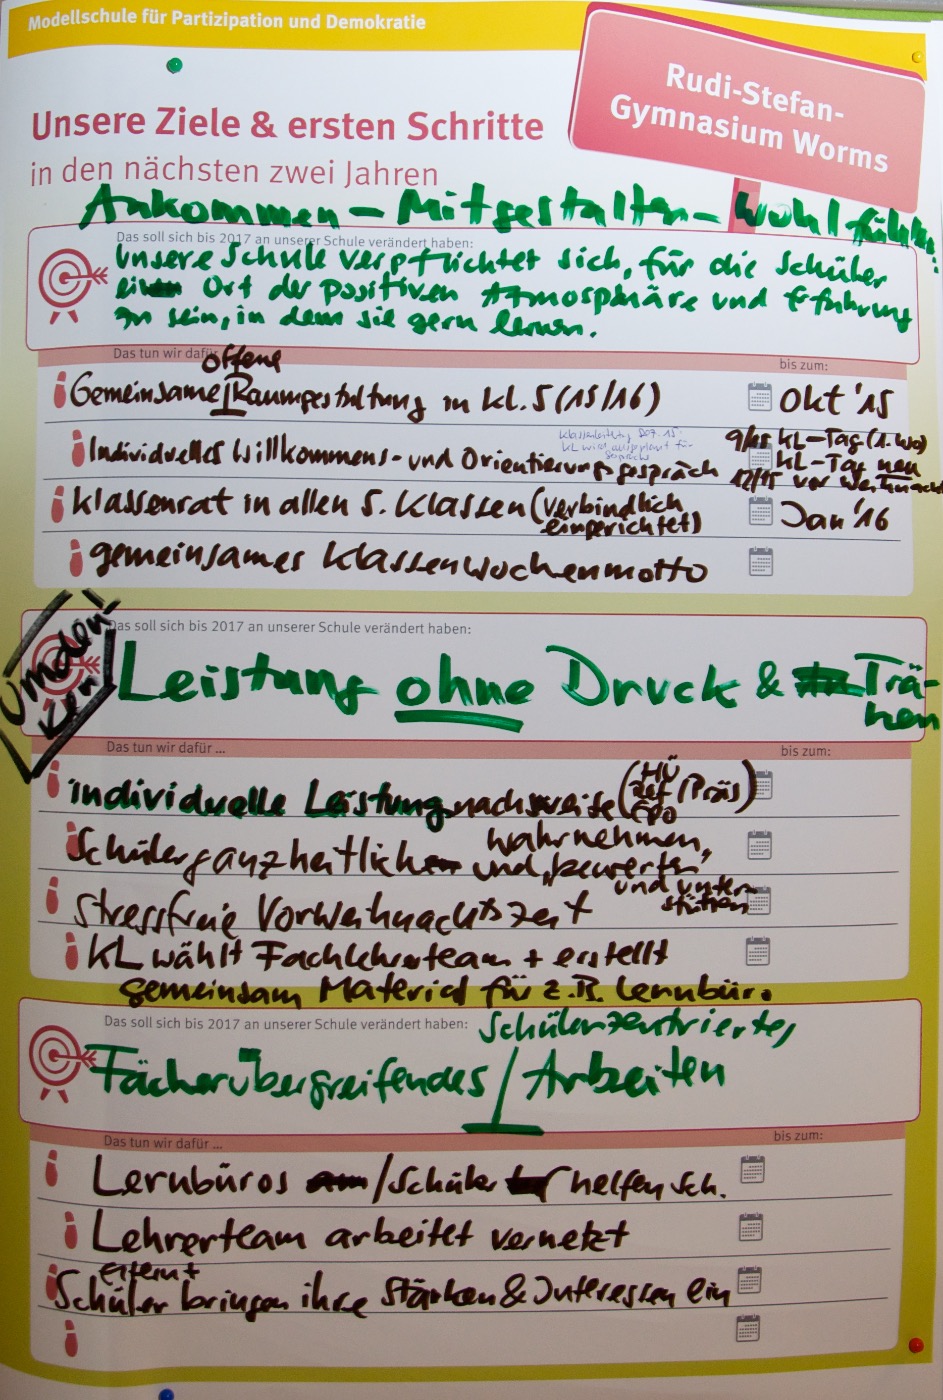 Modellschule für Partizipation und Demokratie
Rudi-Stefan-
Gymnasium Worms
Unsere Ziele & ersten Schritte
in den nächsten zwei Jahren
Ankommen - Mitgestalten - Wohlfühlen
Das soll sich bis 2017 an unserer Schule verändert haben:
Unsere Schule verpflichtet sich, für die Schüler
ein Ort der positiven Atmosphäre und Erfahrung
zu sein, in dem sie gern lernen.
Das tun wir dafür
bis zum:
offene
Gemeinsame Raumgestaltung in Kl. 5 (15/16)
Okt '15
Klassenleitertag Dez. 15
KL wird ausgeplant für
Gespräche
Individuelles Willkommens- und Orientierungsgespräch
9/15 KL-Tag (1. Wo)
KL-Tag neu
12/15 vor Weihnacht
Klassenrat in allen 5. Klassen (verbindlich
eingerichtet)
Jan '16
gemeinsames Klassenwochenmotto
Umden-
ken!
Das soll sich bis 2017 an unserer Schule verändert haben:
Leistung ohne Druck & Trä-
nen
Das tun wir dafür ...
bis zum:
individuelle Leistungsnachweise (HÜ / Präs)
Schüler ganzheitlich wahrnehmen,
und bewerten
und unter-
stützen
stressfreie Vorweihnachtszeit
KL wählt Fachlehrerteam + erstellt
gemeinsam Material für z.B. Lernbüro.
Das soll sich bis 2017 an unserer Schule verändert haben:
Schülerzentriertes
Fächerübergreifendes / Arbeiten
Das tun wir dafür ...
bis zum:
Lernbüros / Schüler helfen Sch.
Lehrerteam arbeitet vernetzt
Eltern +
Schüler bringen ihre Stärken & Interessen ein